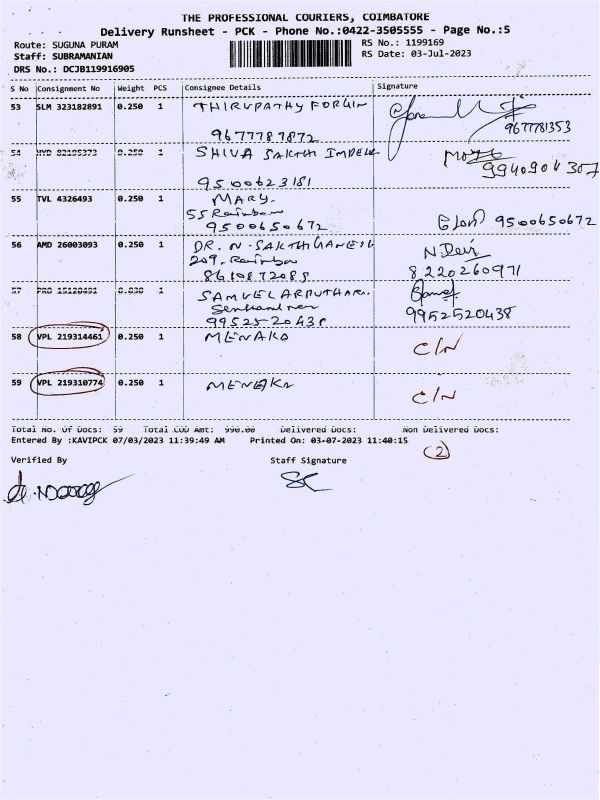 THE PROFESSIONAL COURIERS, COIMBATORE
Delivery Runsheet - PCK - Phone No.:0422-3505555 - Page No.:5
Route: SUGUNA PURAM
RS No.: 1199169
Staff: SUBRAMANIAN
RS Date: 03-Jul-2023
DRS No.: DCJB119916905
S No Consignment No Weight PCS Consignee Details Signature
53 SLM 323182891 0.250 1 THIRUPATHY
9677787872 9677781353
54 HYD 82195373 0.250 1 SHIVA SAKTHI
9500623181 9940904307
55 TVL 4326493 0.250 1 MARY.
55 Rainbow
9500650672 9500650672
56 AMD 26003093 0.250 1 DR. N. SAKTHIGANESH N. Devi
209. Rainbow
8610872089 8220260971
57 PRO 15120491 0.030 1 SAMVEL
9952520438 9952520438
58 VPL 219314461 0.250 1 MENAKA C/N
59 VPL 219310774 0.250 1 MENAKA C/N
Total No. Of Docs: 59 Total COD Amt: 990.00 Delivered Docs: Non Delivered Docs:
Entered By :KAVIPCK 07/03/2023 11:39:49 AM Printed On: 03-07-2023 11:40:15
(2)
Verified By Staff Signature